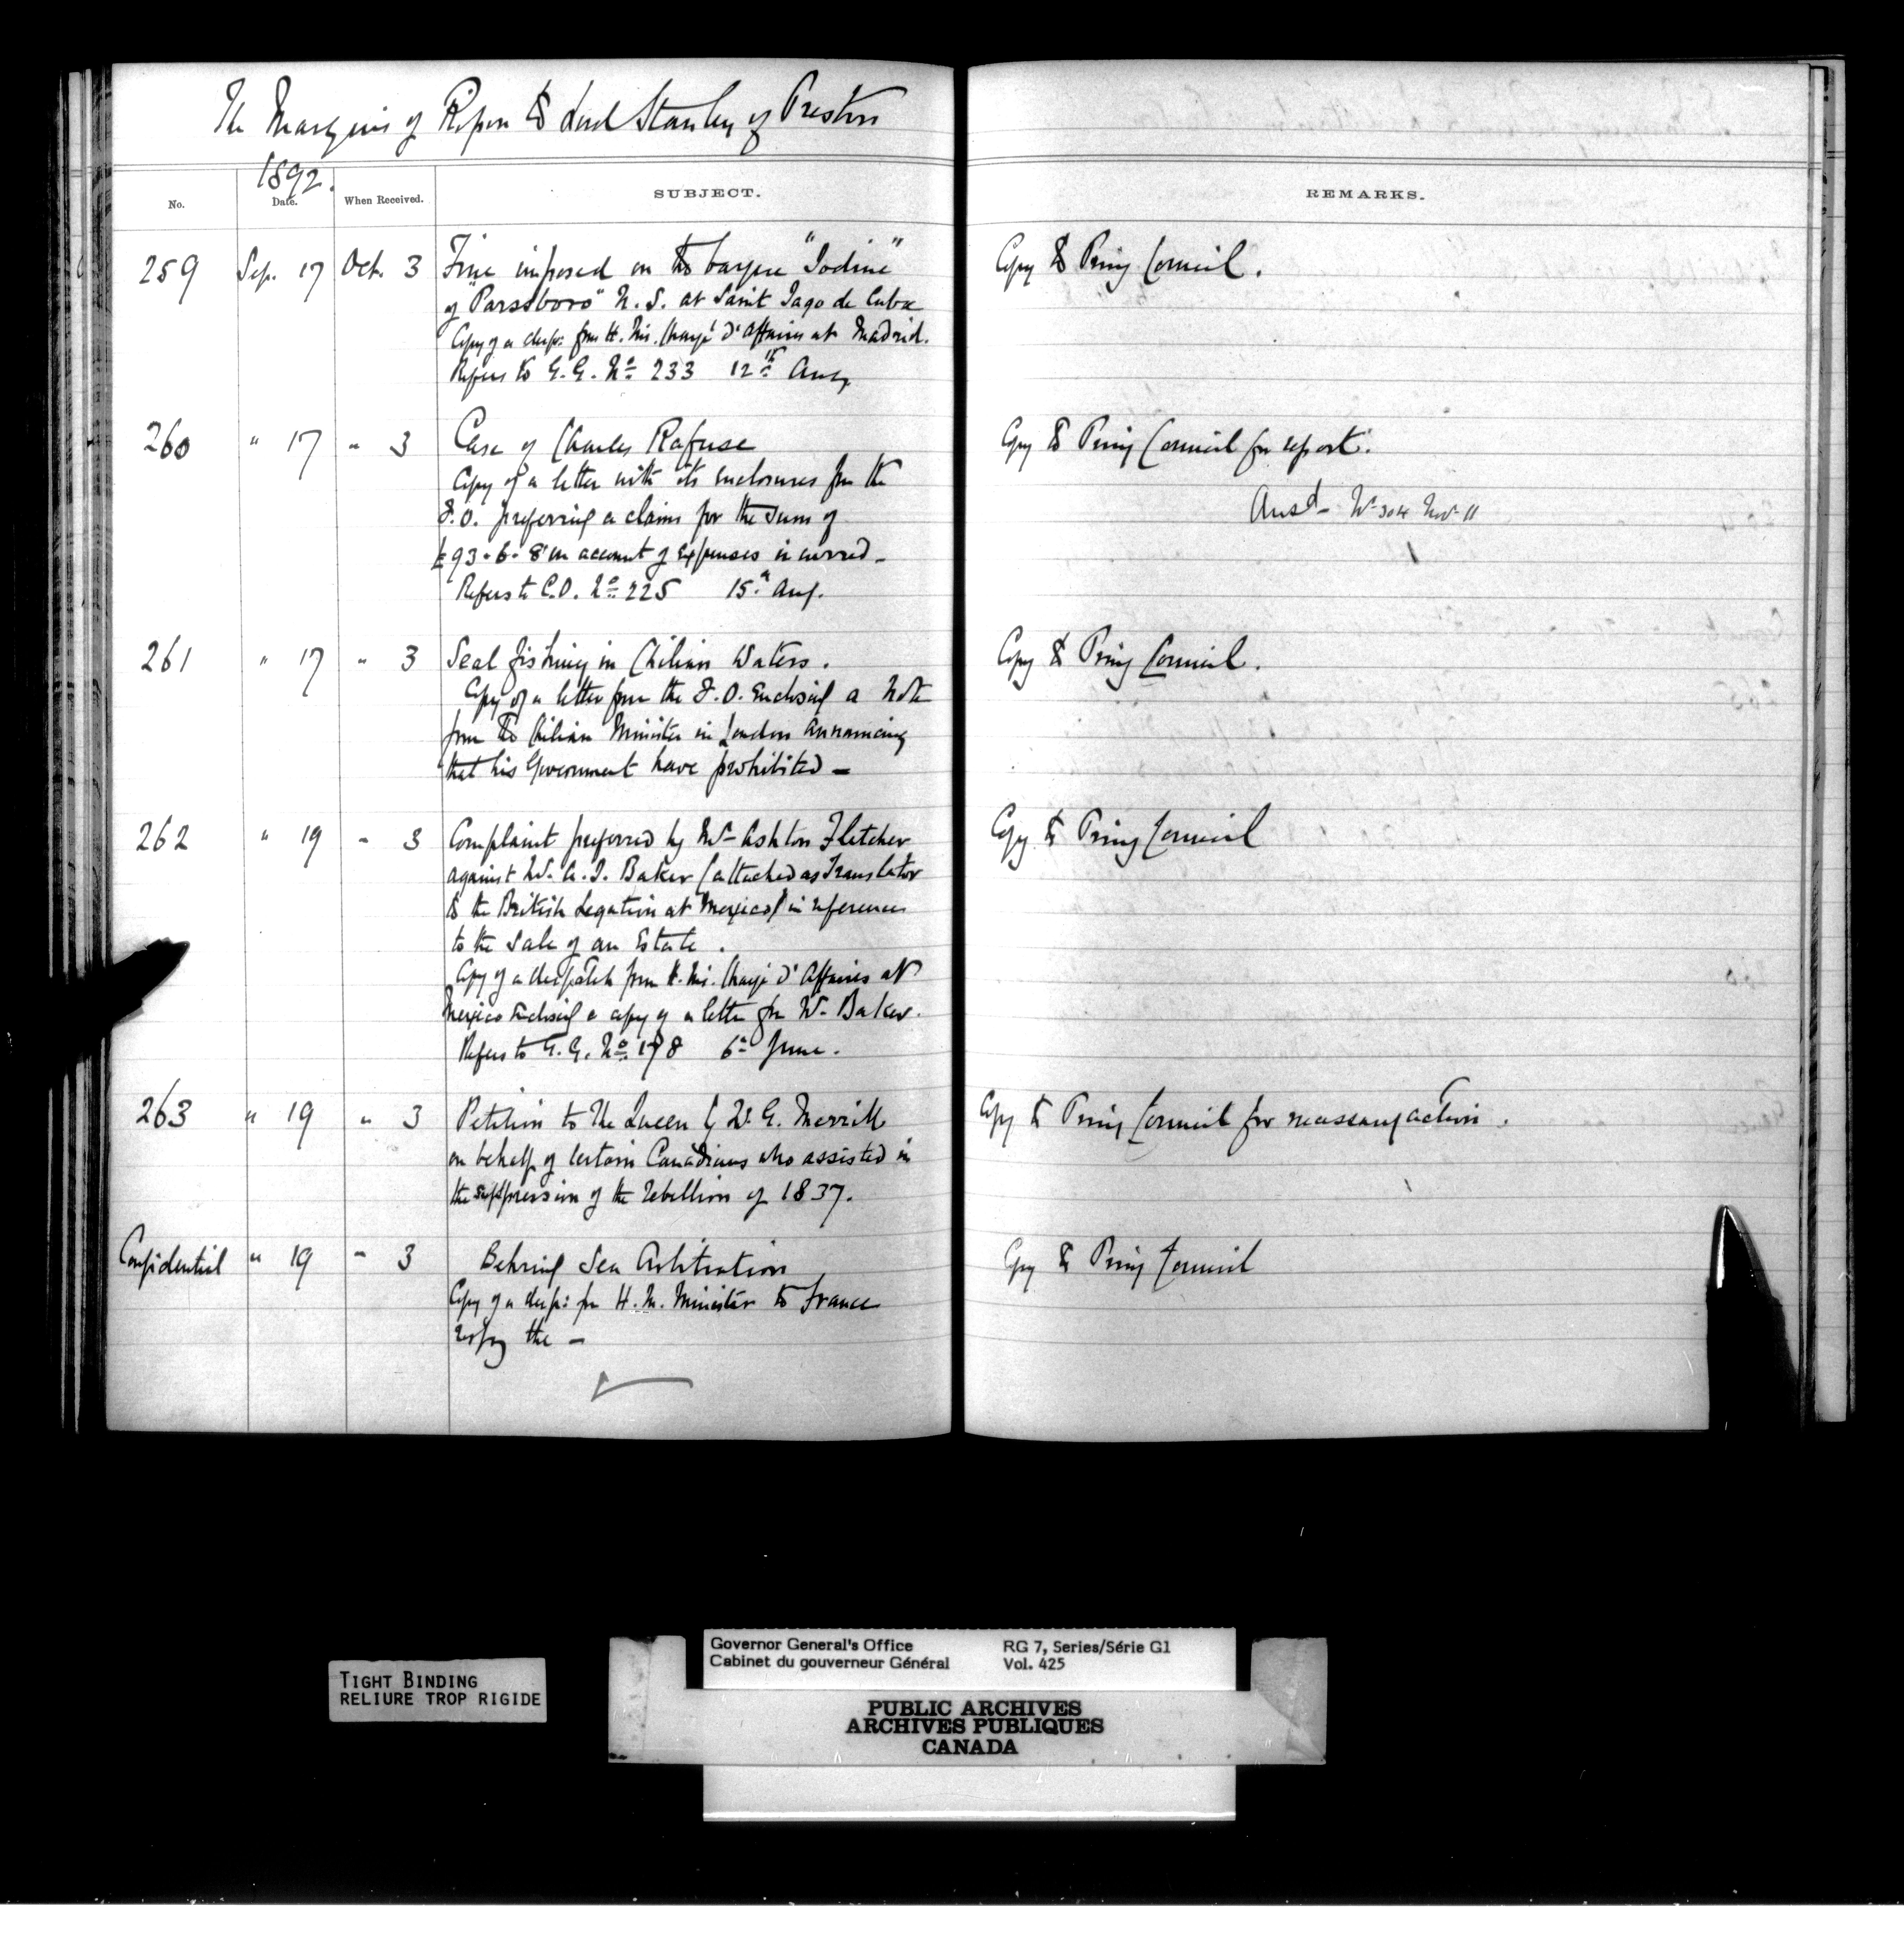 The Marquis of Ripon to Lord Stanley of Preston
1892.
No. Date. When Received. SUBJECT. REMARKS.
259 Sep. 17 Oct. 3 Fine imposed on the barque "Iodine" Copy to Privy Council.
of "Parssboro" N.S. at Saint Iago de Cuba
Copy of a desp: from H. Ms. Chargé d'Affaires at Madrid.
Refers to G.G. No. 233 12th Aug.
260 " 17 " 3 Case of Charles Rafuse Copy to Privy Council for report.
Copy of a letter with its enclosures from the
F.O. preferring a claim for the sum of Ansd - No 304 Nov 11
£93-6-8 on account of expenses incurred -
Refers to C.O. No. 225 15th Aug.
261 " 17 " 3 Seal fishing in Chilian Waters. Copy to Privy Council.
Copy of a letter from the F.O. enclosing a Note
from the Chilian Minister in London announcing
that his Government have prohibited -
262 " 19 " 3 Complaint preferred by Mr Ashton Fletcher Copy to Privy Council
against Mr. Baker (attached as Translator
to the British Legation at Mexico) in reference
to the sale of an Estate.
Copy of a despatch from H. Ms. Chargé d'Affaires at
Mexico enclosing a copy of a letter from Mr. Baker.
Refers to G.G. No. 178 6th June.
263 " 19 " 3 Petition to the Queen by W. G. Merrill Copy to Privy Council for necessary action.
on behalf of certain Canadians who assisted in
the suppression of the Rebellion of 1837.
Confidential " 19 " 3 Behring Sea Arbitration Copy to Privy Council
Copy of a desp: from H. M. Minister to France
respg the -
Governor General's Office RG 7, Series/Série G1
Cabinet du gouverneur Général Vol. 425
TIGHT BINDING
RELIURE TROP RIGIDE
PUBLIC ARCHIVES
ARCHIVES PUBLIQUES
CANADA